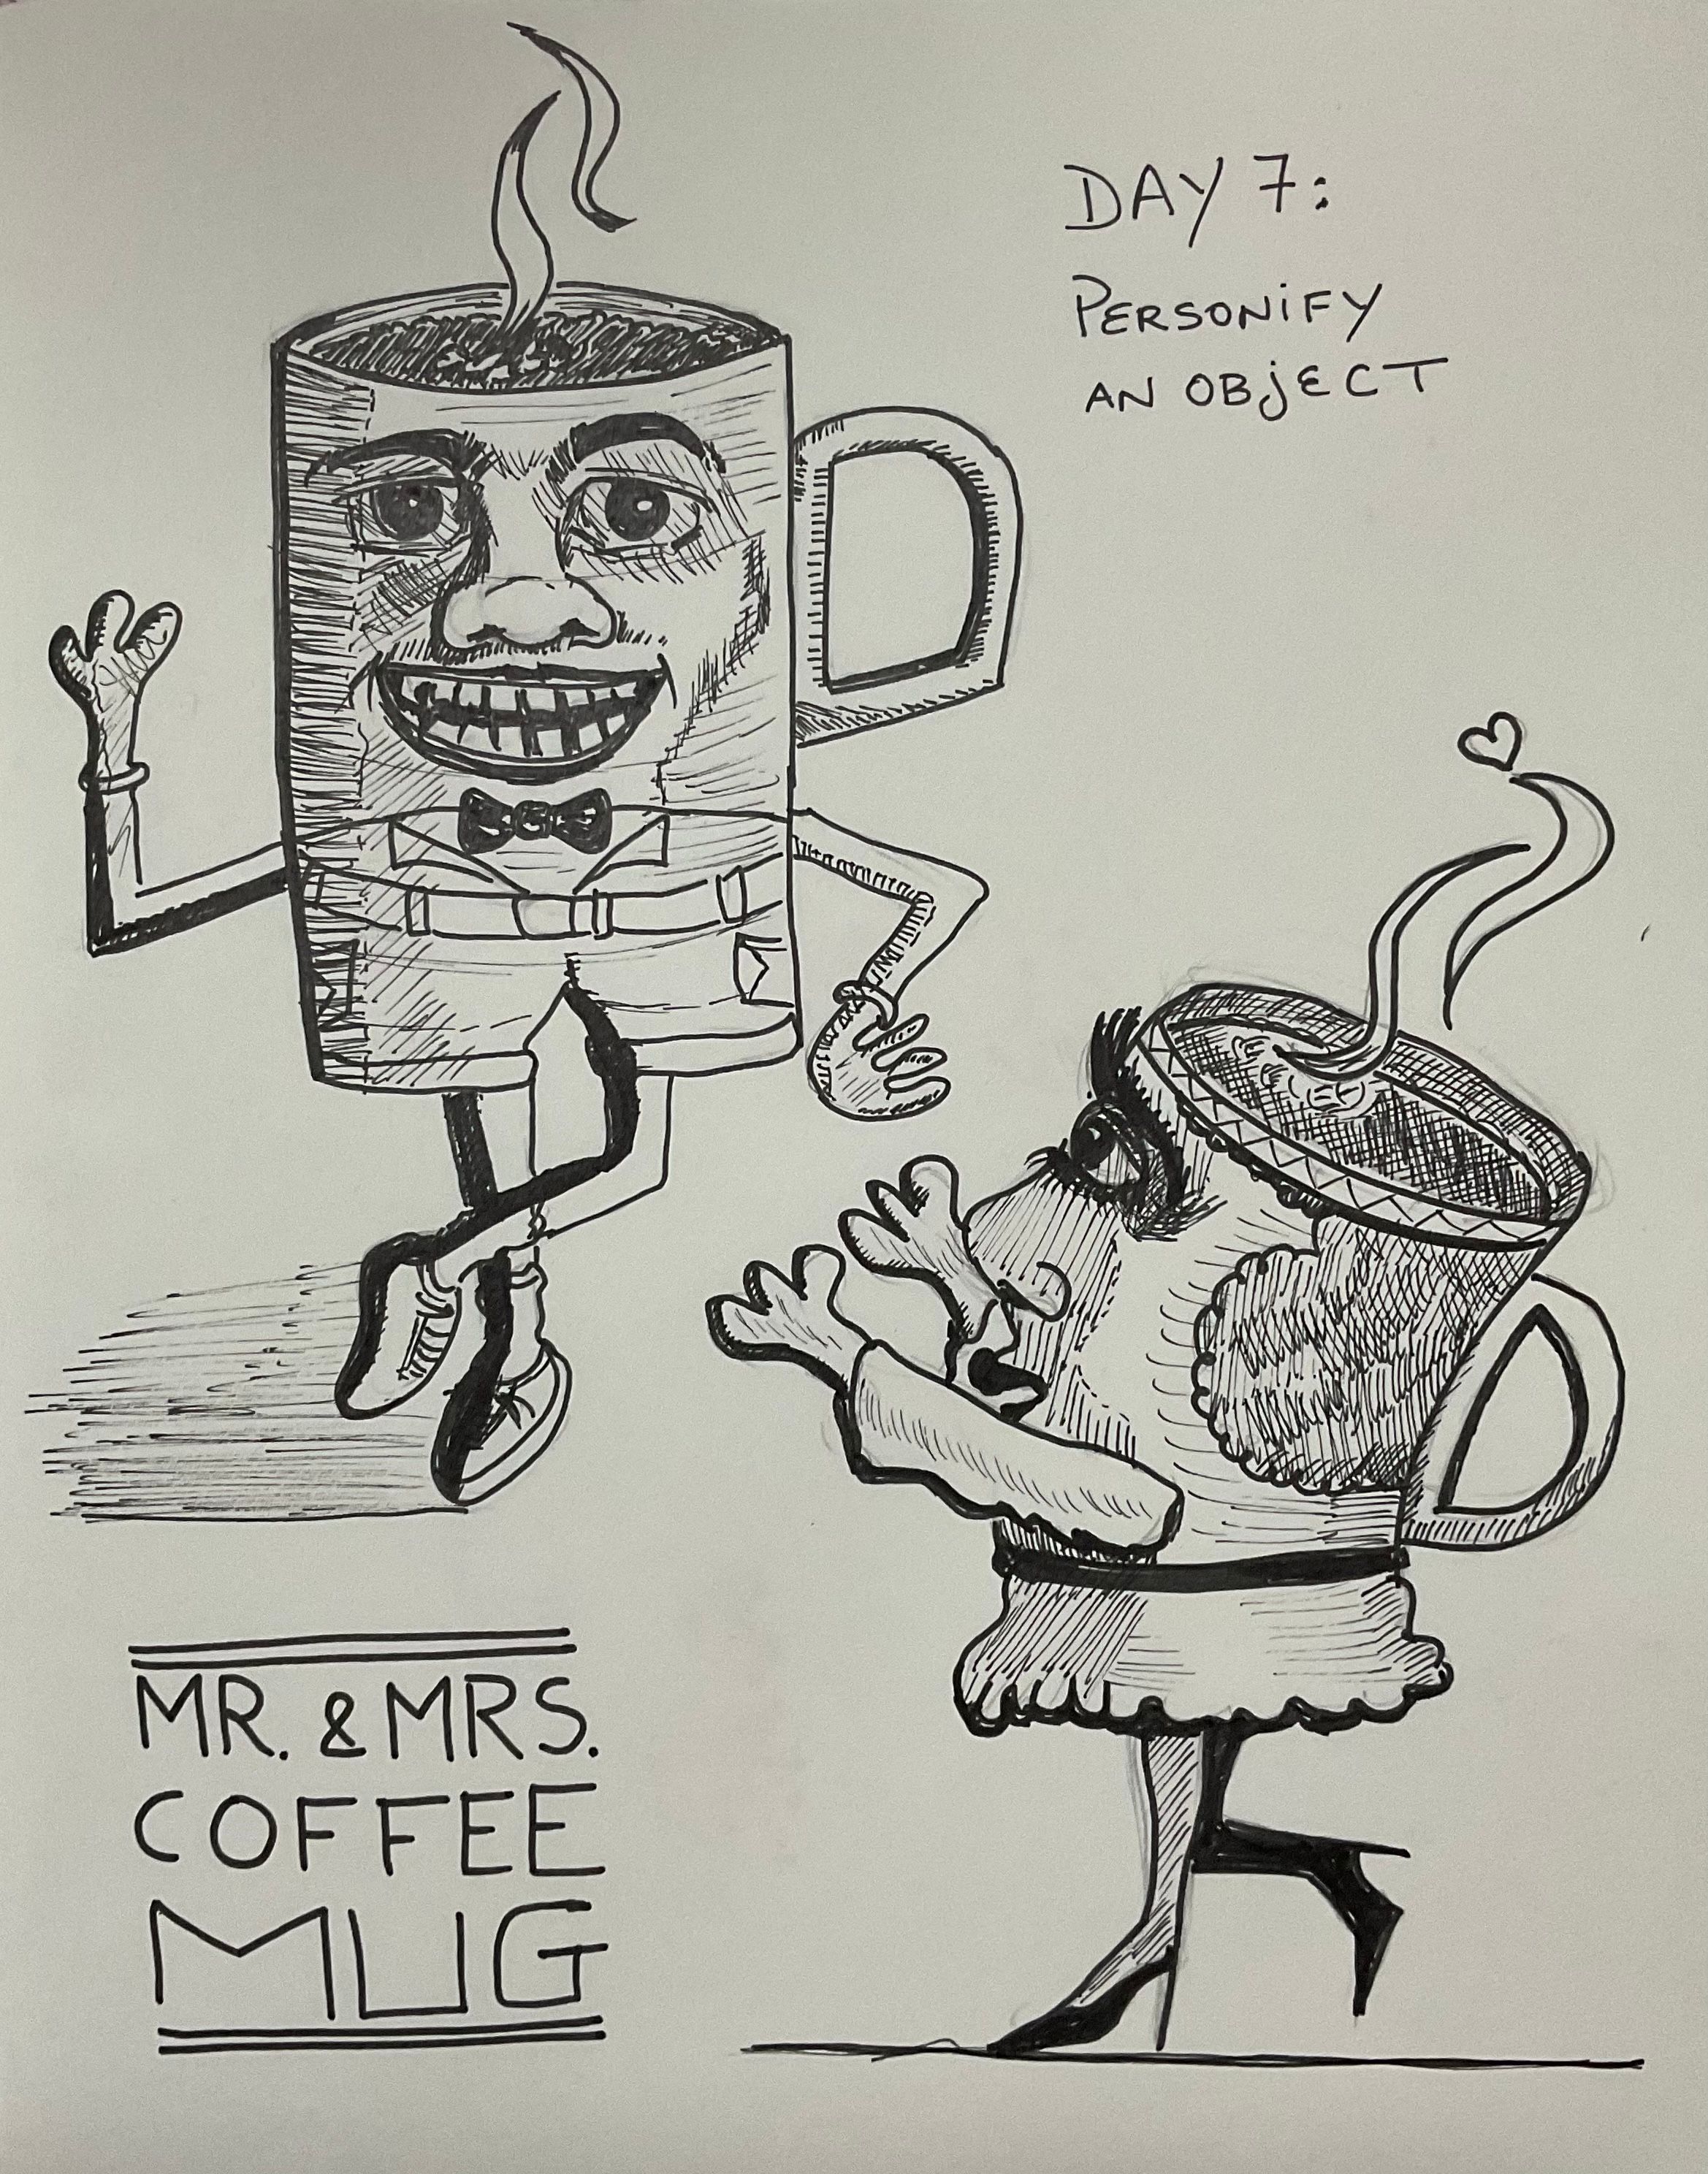 DAY 7:
PERSONiFY
AN OBjECT
MR. & MRS.
COFFEE
MUG